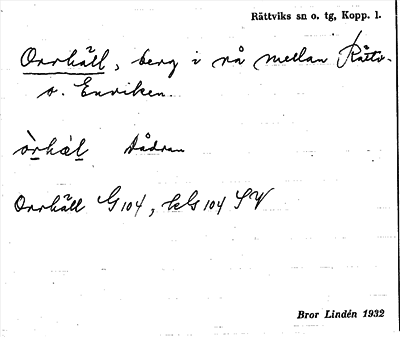 Rättviks sn o. tg, Kopp. l.
Orrhäll, berg i rå mellan Rättv.
o. Enviken.
òrhæ̀l Dådran
Orrhäll G 104, kG 104 SV
Bror Lindén 1932